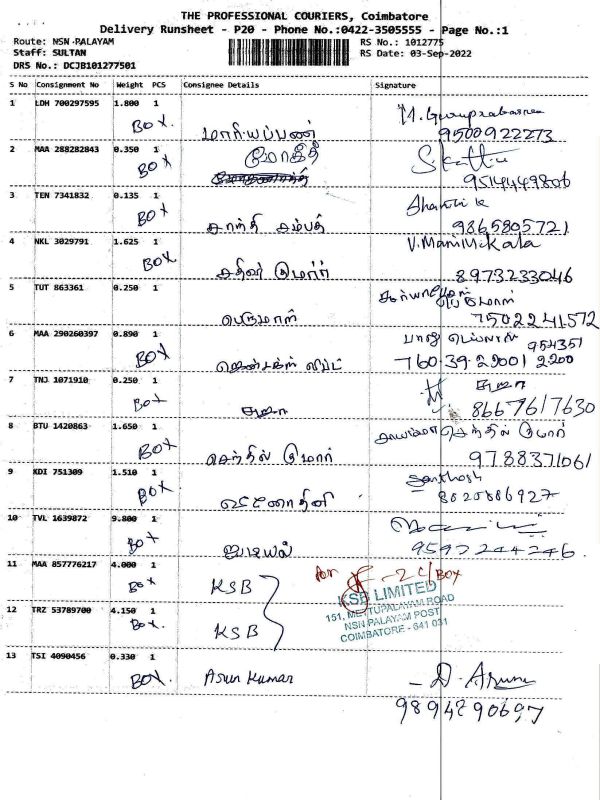 THE PROFESSIONAL COURIERS, Coimbatore
Delivery Runsheet - P20 - Phone No.:0422-3505555 - Page No.:1
Route: NSN PALAYAM
RS No.: 1012775
Staff: SULTAN
RS Date: 03-Sep-2022
DRS No.: DCJB101277501
S No Consignment No Weight PCS Consignee Details Signature
1 LDH 700297595 1.800 1
BOX. மாரியப்பன்
9500922273
2 MAA 288282843 0.350 1
BOX
9514449806
3 TEN 7341832 0.135 1 Shanthi K
BOX சாந்தி சம்பத் 9865805721
4 NKL 3029791 1.625 1 V. Manimekala
BOX கதிவர் குமார் 8973233046
5 TUT 863361 0.250 1
பெருமாள் 7502241572
6 MAA 290260397 0.890 1 954351
BOX 760-39-22001 2200
7 TNJ 1071910 0.250 1 சுஜா
BOX சுஜா 86677617630
8 BTU 1420863 1.650 1 செந்தில் குமார்
BOX செந்தில் குமார் 9788371061
9 KDI 751309 1.510 1 Santhosh
BOX. 8020886927
10 TVL 1639872 9.800 1
BOX 9597244246.
11 MAA 857776217 4.000 1 -2 C/BOX
BOX KSB
KSB LIMITED
151, METTUPALAYAM ROAD
NSN PALAYAM POST
COIMBATORE - 641 031
12 TRZ 53789700 4.150 1
BOX. KSB
13 TSI 4090456 0.330 1
BOX. Arun Kumar D. Arun
9894290697